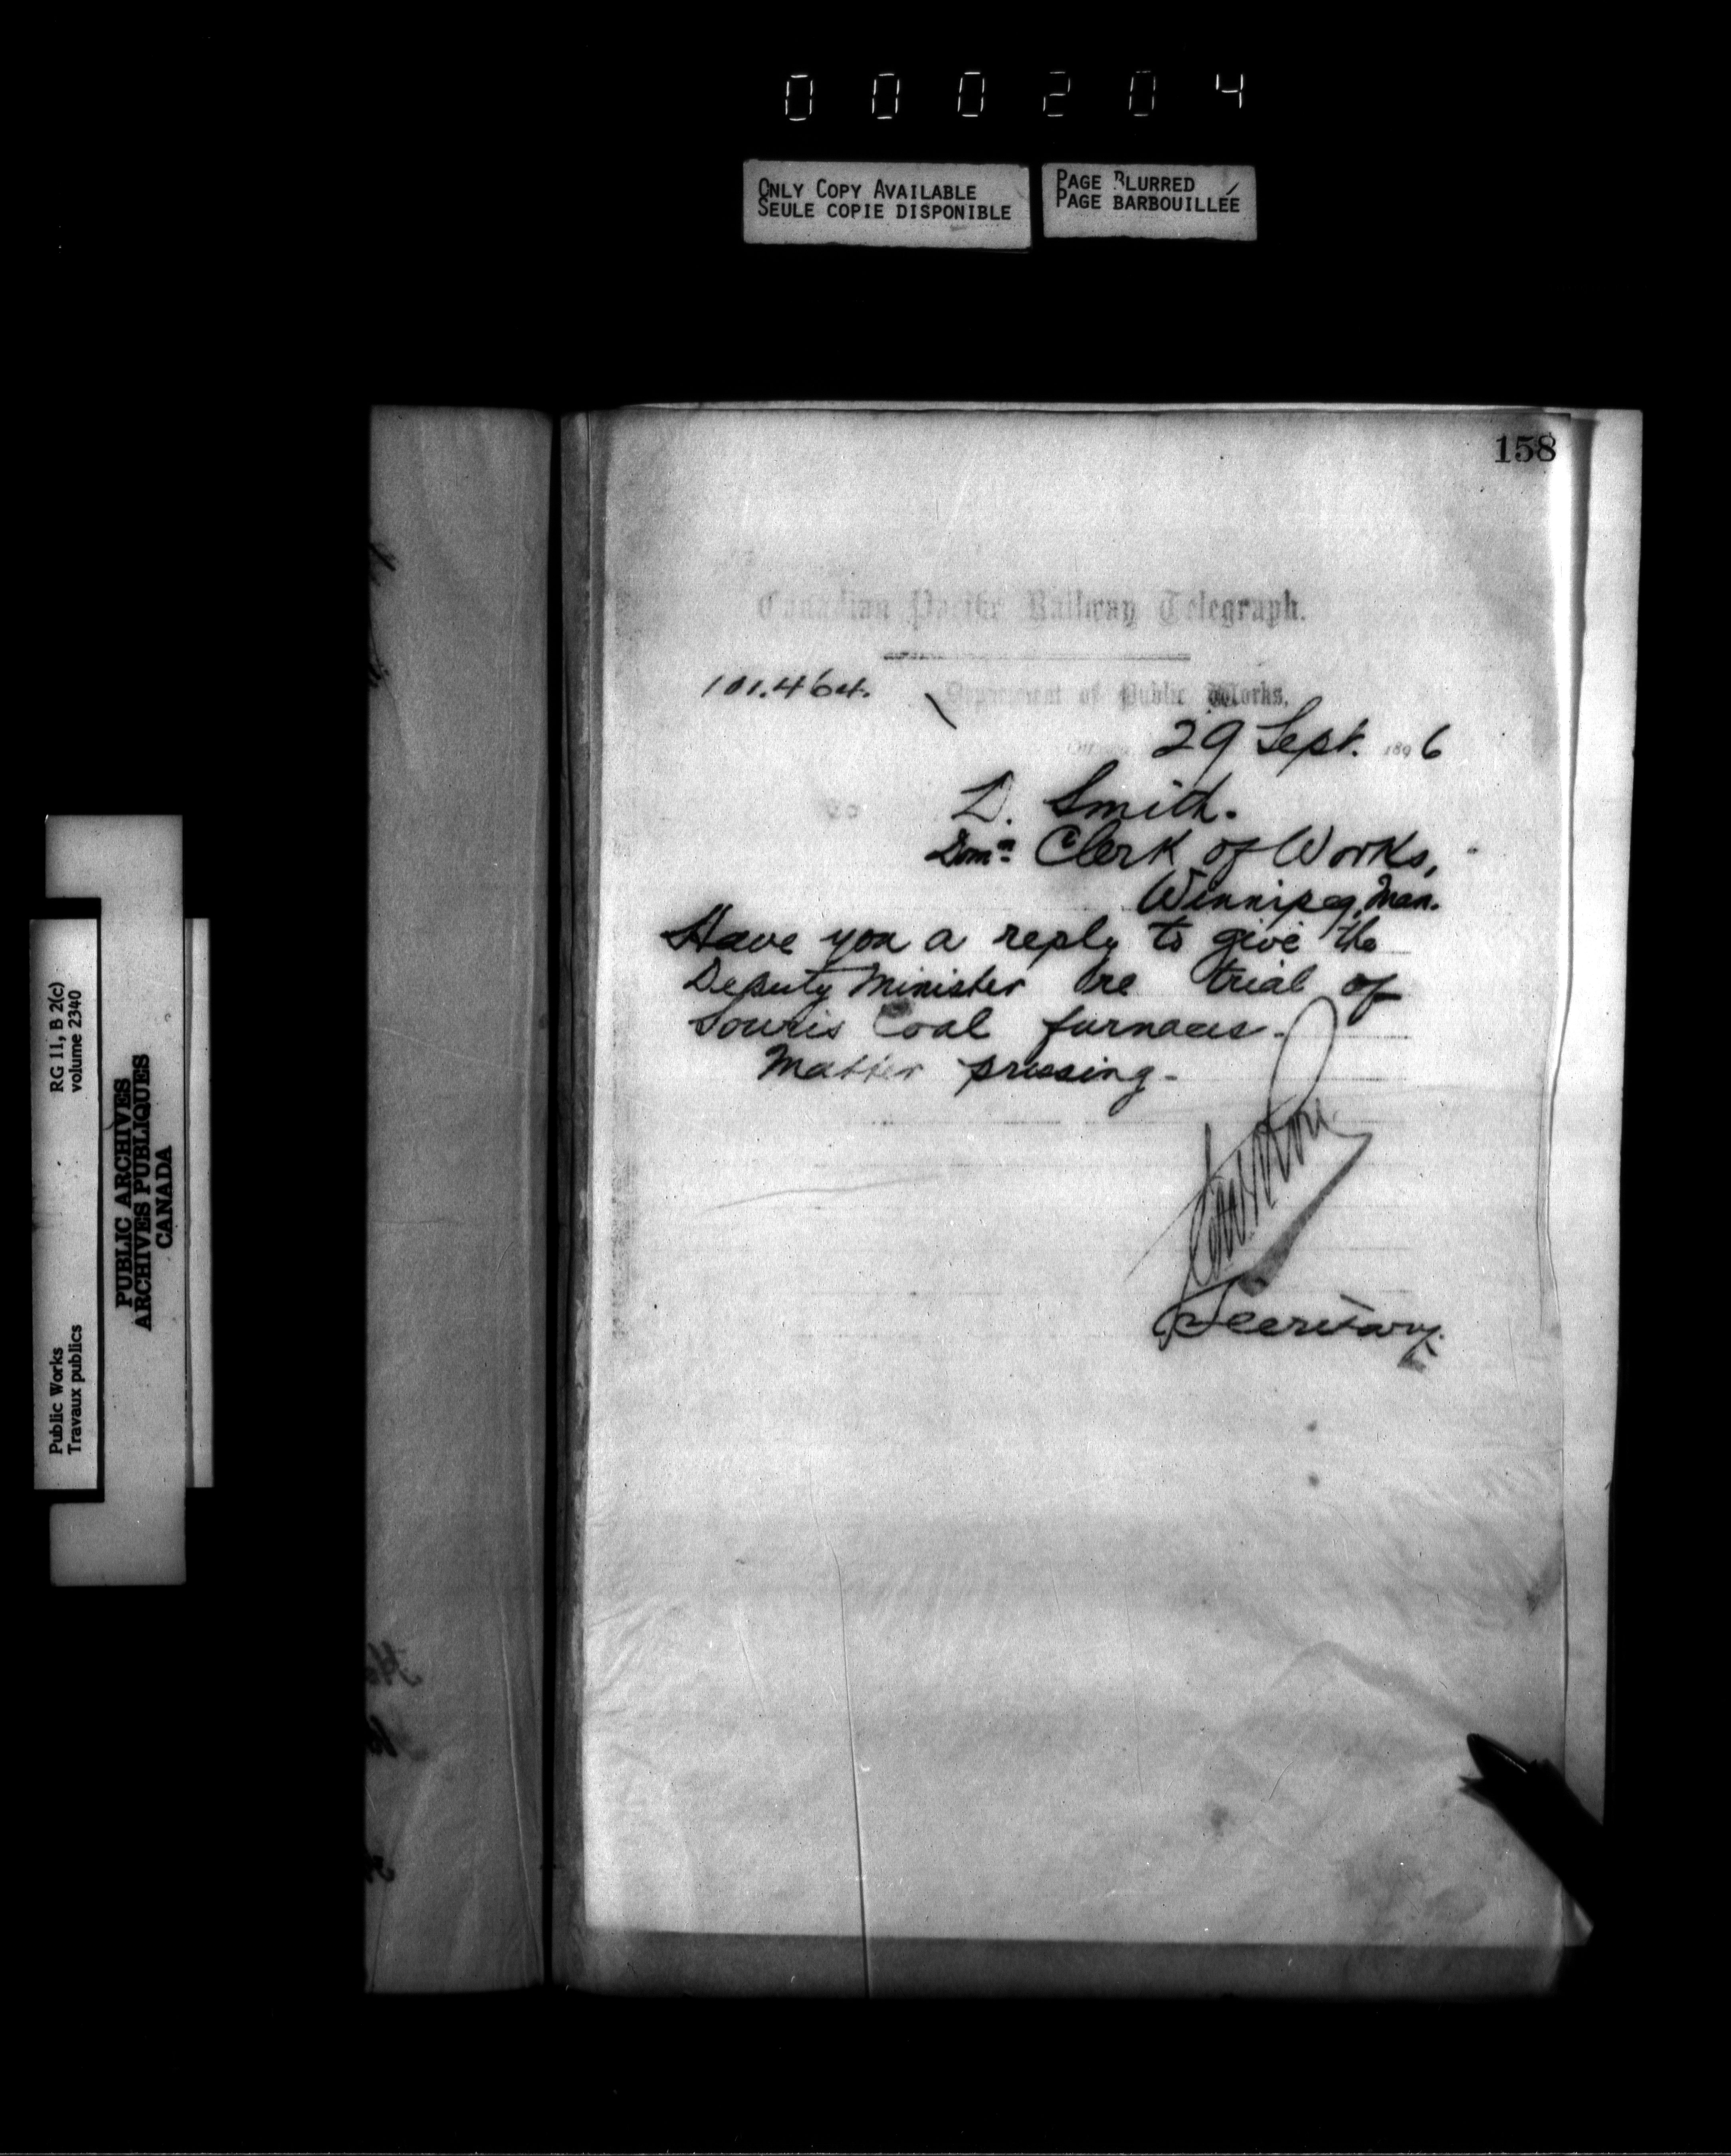 000204
ONLY COPY AVAILABLE
SEULE COPIE DISPONIBLE
PAGE BLURRED
PAGE BARBOUILLÉE
158
Canadian Pacific Railway Telegraph.
101.464.
Department of Public Works,
29 Sept. 1896
D. Smith.
Domn Clerk of Works,
Winnipeg, Man.
Have you a reply to give the
Deputy Minister re trial of
Souris Coal furnaces.
Matter pressing.
Secretary.
RG 11, B 2(c)
volume 2340
PUBLIC ARCHIVES
ARCHIVES PUBLIQUES
CANADA
Public Works
Travaux publics